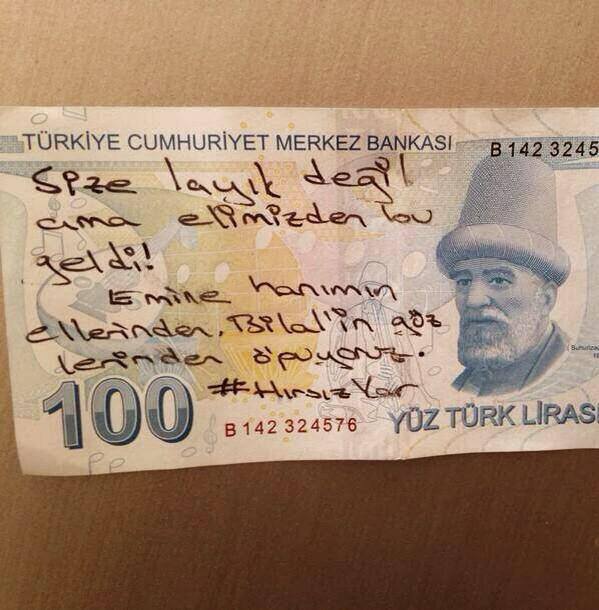 TÜRKİYE CUMHURİYET MERKEZ BANKASI
B 142 3245
Size layık değil
ama elimizden bu
geldi!
Emine hanımın
ellerinden, Bilal'in göz
lerinden öpüyoruz.
#HırsızVar
100
B 142 324576
YÜZ TÜRK LİRASI